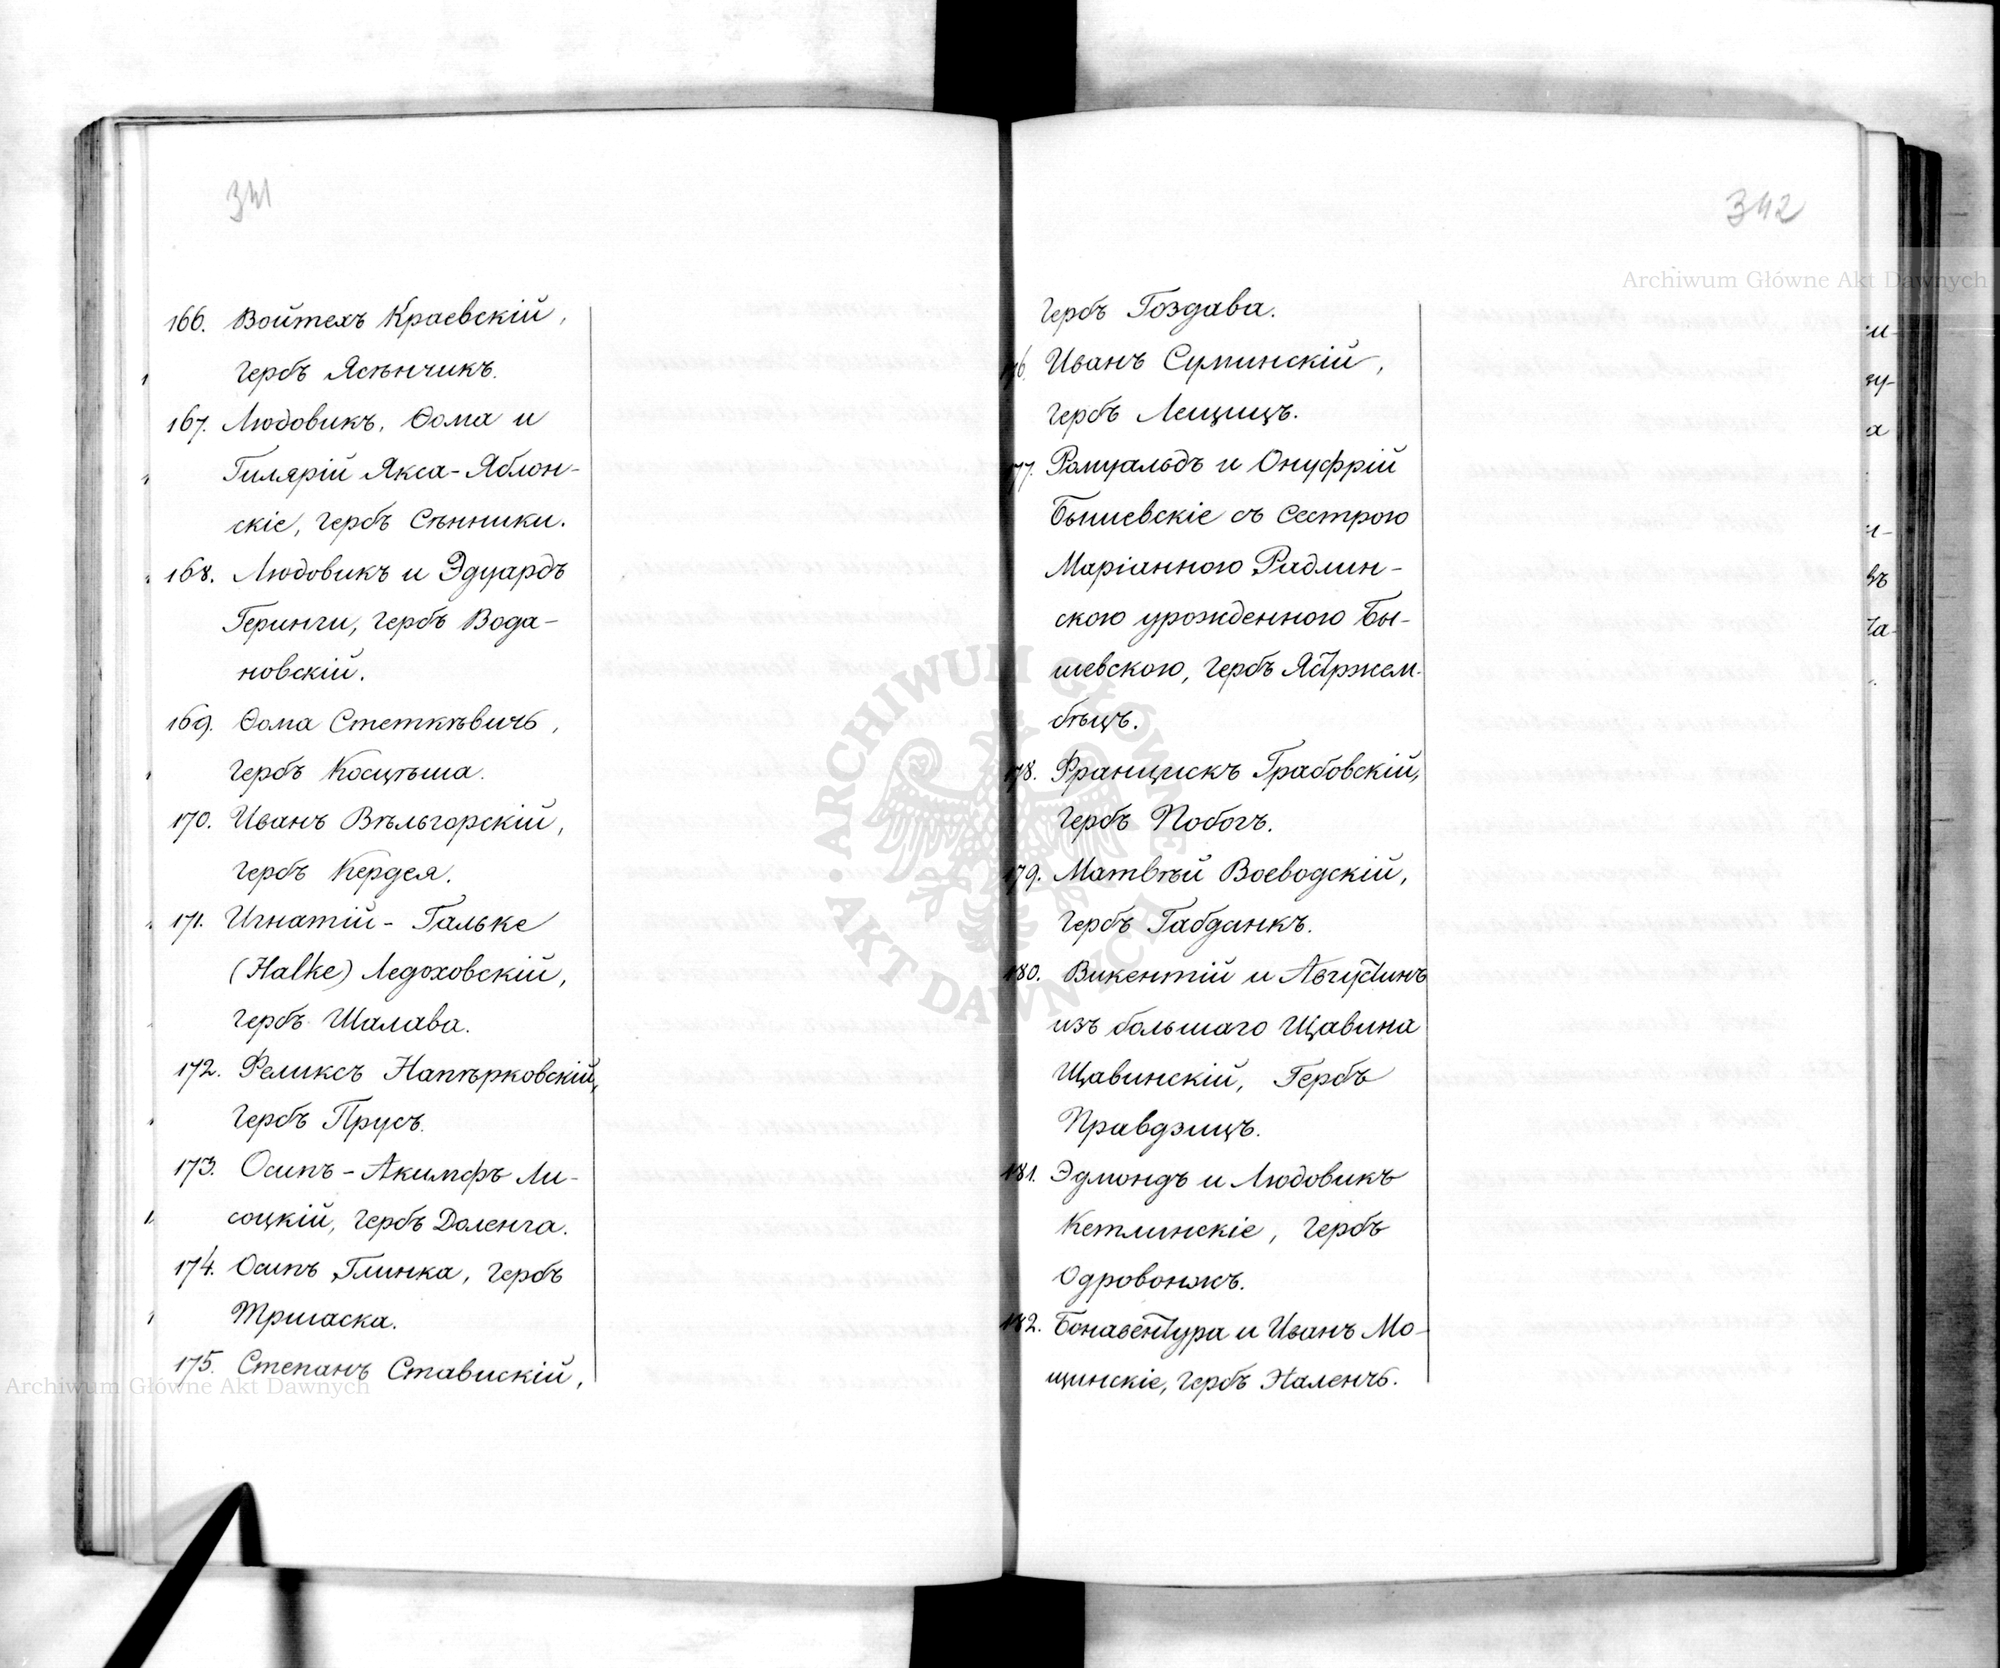 341
166. Войтехъ Краевскій,
гербъ Ясѣнчикъ.
167. Людовикъ, Ѳома и
Гилярій Якса-Яблон-
скіе, гербъ Сѣнники.
168. Людовикъ и Эдуардъ
Геринги, гербъ Вода-
новскій.
169. Ѳома Стеткѣвичъ,
гербъ Косцѣша.
170. Иванъ Вѣльгорскій,
гербъ Кердея.
171. Игнатій-Гальке
(Halke) Ледоховскій,
гербъ Шалава.
172. Феликсъ Напѣрковскій,
гербъ Прусъ.
173. Осипъ-Акимфъ Ли-
соцкій, гербъ Доленга.
174. Осипъ Глинка, гербъ
Тршаска.
175. Степанъ Ставискій,
342
гербъ Гоздава.
176. Иванъ Суминскій,
гербъ Лещицъ.
177. Ромуальдъ и Онуфрій
Бышевскіе съ сестрою
Маріанною Радлин-
скою урожденного Бы-
шевскою, гербъ Ястржем-
бѣцъ.
178. Францискъ Грабовскій,
гербъ Побогъ.
179. Матвѣй Воеводскій,
гербъ Габданкъ.
180. Викентій и Августинъ
изъ большаго Щавина
Щавинскій, Гербъ
Правдзицъ.
181. Эдмондъ и Людовикъ
Кетлинскіе, гербъ
Одровонжъ.
182. Бонавентура и Иванъ Мо-
щинскіе, гербъ Наленчъ.
Archiwum Główne Akt Dawnych
Archiwum Główne Akt Dawnych
ARCHIWUM GŁÓWNE AKT DAWNYCH